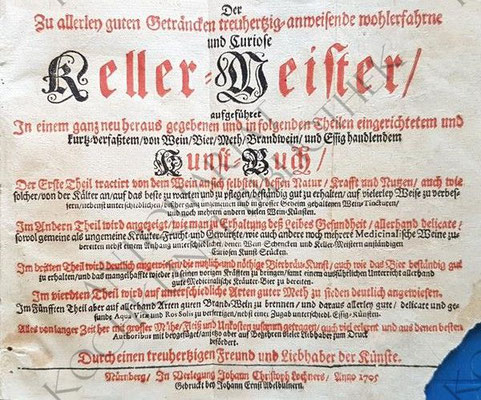 Der
Zu allerley guten Geträncken treuhertzig-anweisende wohlerfahrne
und Curiose
Keller-Meister/
aufgeführet
In einem gantz neu heraus gegebenen und in folgenden Theilen eingerichtetem und
kurtz-verfaßtem/von Wein/Bier/Meth/Brandwein/und Essig handlendem
Kunst Buch/
Der Erste Theil tractirt von dem Wein an sich selbsten/dessen Natur/Krafft und Nutzen/auch wie
solcher/von der Kälter an/auf das beste zu warten und zu pflegen/beständig gut zu erhalten/auf vielerley Weise zu verbes-
sern/nebenst unterschiedlichen/ und in grosser Geheim gehaltenen Wein-Tincturen/
und noch mehrern andern vielen Wein-Künsten.
Im Andern Theil wird angezeigt/wie man zu Erhaltung deß Leibes Gesundheit/allerhand delicate/
sowol gemeine als ungemeine Kräuter-Frucht- und Gewürtzte/wie auch andere noch mehrere Medicinalische Weine zu-
bereiten/nebst einem Anhang unterschiedlicher/denen Wein-Schencken und Keller-Meistern anständigen
Curiosen Kunst-Stücken.
Im dritten Theil wird deutlich angewiesen/die nutzlich und nöthige Bierbräu-Kunst/auch wie das Bier beständig gut
zu erhalten/und das mangelhaffte wieder zu seinen vorigen Kräfften zu bringen/samt einem ausführlichen Unterricht allerhand
gute Medicinalische Kräuter-Bier zu bereiten.
Im vierdten Theil wird auf unterschiedliche Arten guter Meth zu sieden deutlich angewiesen.
Im Fünfften Theil aber auf allerhand Arten guten Brandt-Wein zu brennen/und daraus allerley gute/delicate und ge-
sunde Aqua Vitæ und Ros Solis zu verfertigen/nebst einer Zugab unterschiedl. Essig-Künsten.
Alles von langer Zeit her mit grosser Mühe/Fleiß und Unkosten zusamm getragen/auch viel erlernt und aus denen besten
Authoribus mit beygefüget/anitzo aber auf Begehren vieler Liebhaber zum Druck
befördert.
Durch einen treuhertzigen Freund und Liebhaber der Künste.
Nürnberg/In Verlegung Johann Christoph Lochners/Anno 1705
Gedruckt bey Johann Ernst Adelbulnern.